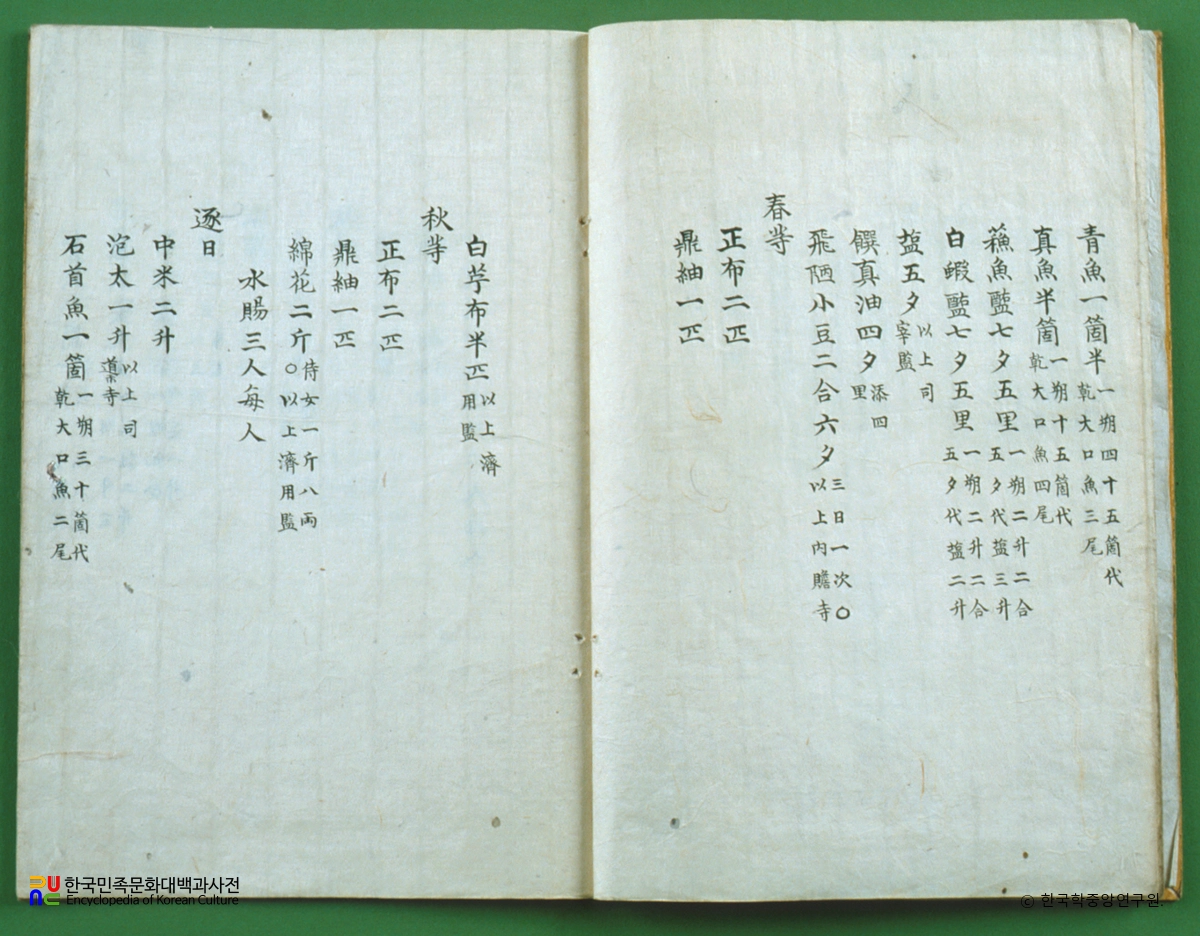 青魚一箇半 一朔四十五箇代 乾大口魚三尾
真魚半箇 一朔十五箇代 乾大口魚四尾
蘓魚醢七夕五里 一朔二升二合五夕代塩三升
白蝦醢七夕五里 一朔二升二合五夕代塩二升
塩五夕 以上司宰監
饌真油四夕 添四里
飛陋小豆二合六夕 三日一次○以上内贍寺
春等
正布二匹
鼎紬一匹
白苧布半匹 以上濟用監
秋等
正布二匹
鼎紬一匹
綿花二斤 侍女一斤八両○以上濟用監
水賜三人每人
逐日
中米二升
泡太一升 以上司導寺
石首魚一箇 一朔三十箇代 乾大口魚二尾
한국민족문화대백과사전
Encyclopedia of Korean Culture
© 한국학중앙연구원.